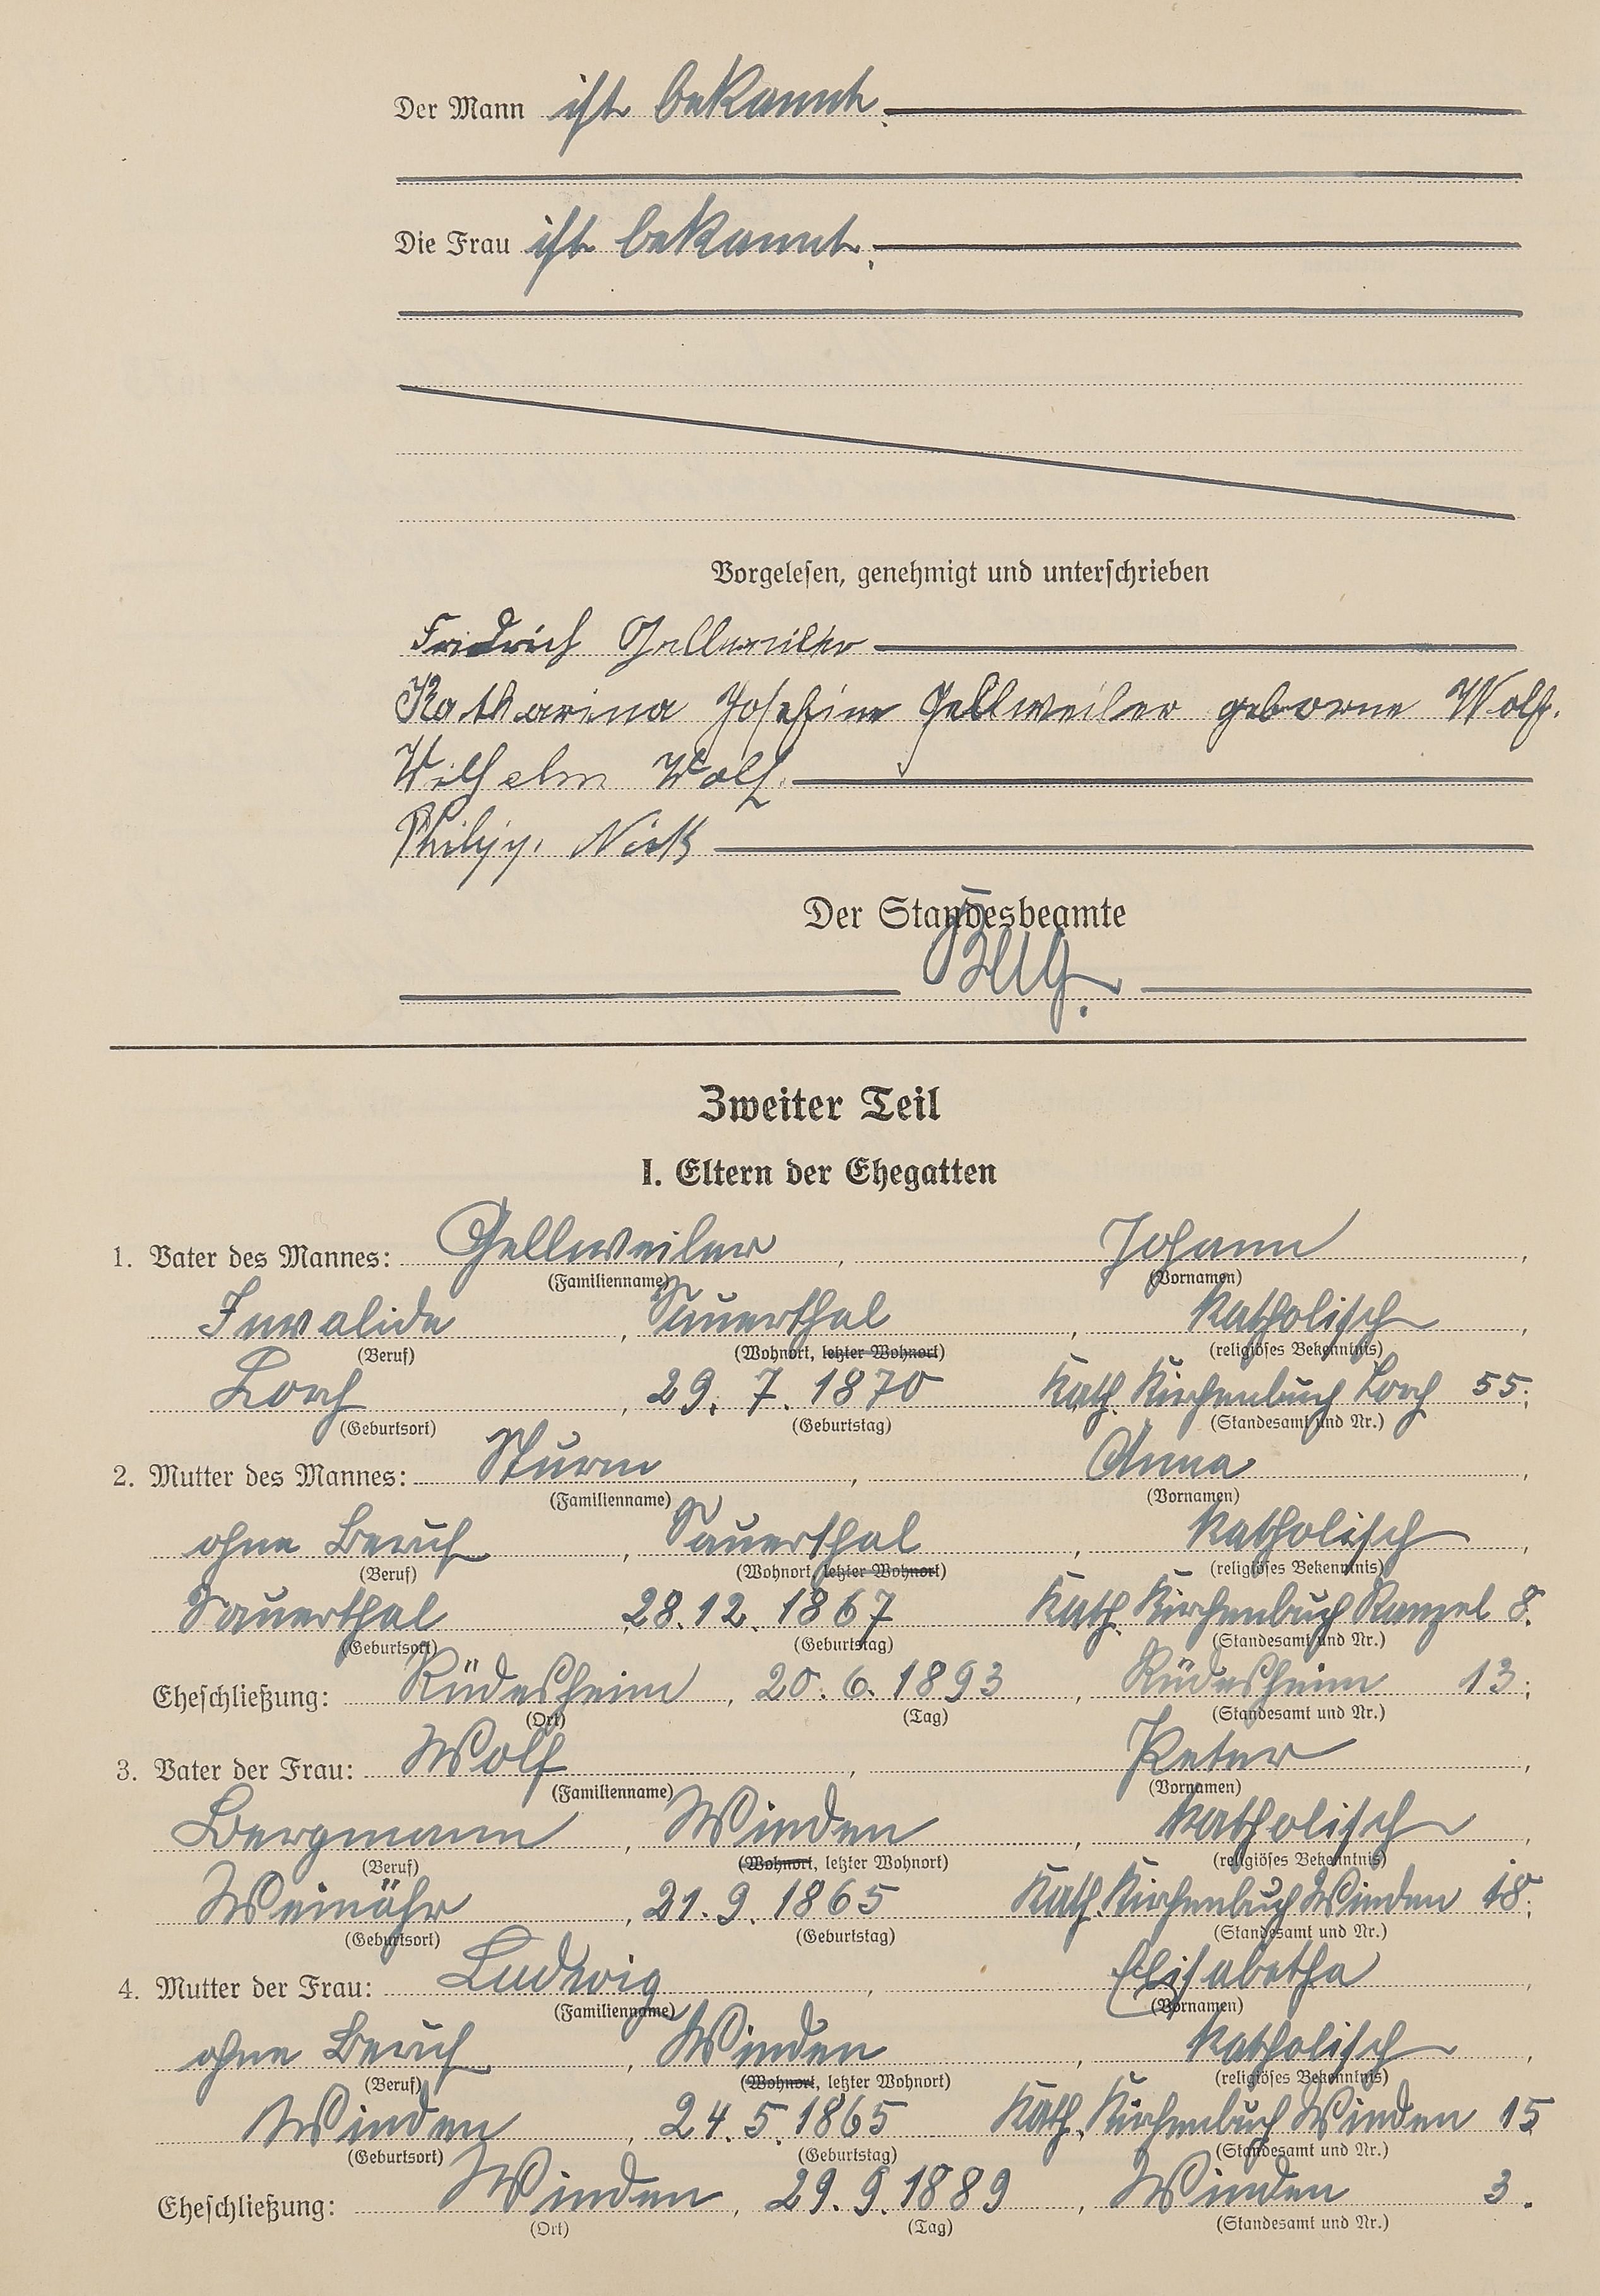 Der Mann ist bekannt.
Die Frau ist bekannt.
Vorgelesen, genehmigt und unterschrieben
Friedrich Gellweiler
Katharina Josefine Gellweiler geborne Wolf.
Wilhelm Wolf.
Philipp. Nick
Der Standesbeamte
Zweiter Teil
I. Eltern der Ehegatten
1. Vater des Mannes: Gellweiler, Johann
(Familienname) (Vornamen)
Invalide, Sauerthal, katholisch,
(Beruf) (Wohnort, letzter Wohnort) (religiöses Bekenntnis)
Lorch, 29. 7. 1870 Kath. Kirchenbuch Lorch 55;
(Geburtsort) (Geburtstag) (Standesamt und Nr.)
2. Mutter des Mannes: Sturm, Anna,
(Familienname) (Vornamen)
ohne Beruf, Sauerthal, katholisch,
(Beruf) (Wohnort, letzter Wohnort) (religiöses Bekenntnis)
Sauerthal, 28.12. 1867 Kath. Kirchenbuch Ranzel 8.
(Geburtsort) (Geburtstag) (Standesamt und Nr.)
Eheschließung: Rüdesheim, 20. 6. 1893, Rüdesheim 13;
(Ort) (Tag) (Standesamt und Nr.)
3. Vater der Frau: Wolf, Peter,
(Familienname) (Vornamen)
Bergmann, Winden, katholisch,
(Beruf) (Wohnort, letzter Wohnort) (religiöses Bekenntnis)
Weinähr, 21. 9. 1865 Kath. Kirchenbuch Winden 18;
(Geburtsort) (Geburtstag) (Standesamt und Nr.)
4. Mutter der Frau: Ludwig, Elisabetha,
(Familienname) (Vornamen)
ohne Beruf, Winden, katholisch,
(Beruf) (Wohnort, letzter Wohnort) (religiöses Bekenntnis)
Winden, 24. 5. 1865 Kath. Kirchenbuch Winden 15
(Geburtsort) (Geburtstag) (Standesamt und Nr.)
Eheschließung: Winden, 29. 9. 1889, Winden 3.
(Ort) (Tag) (Standesamt und Nr.)